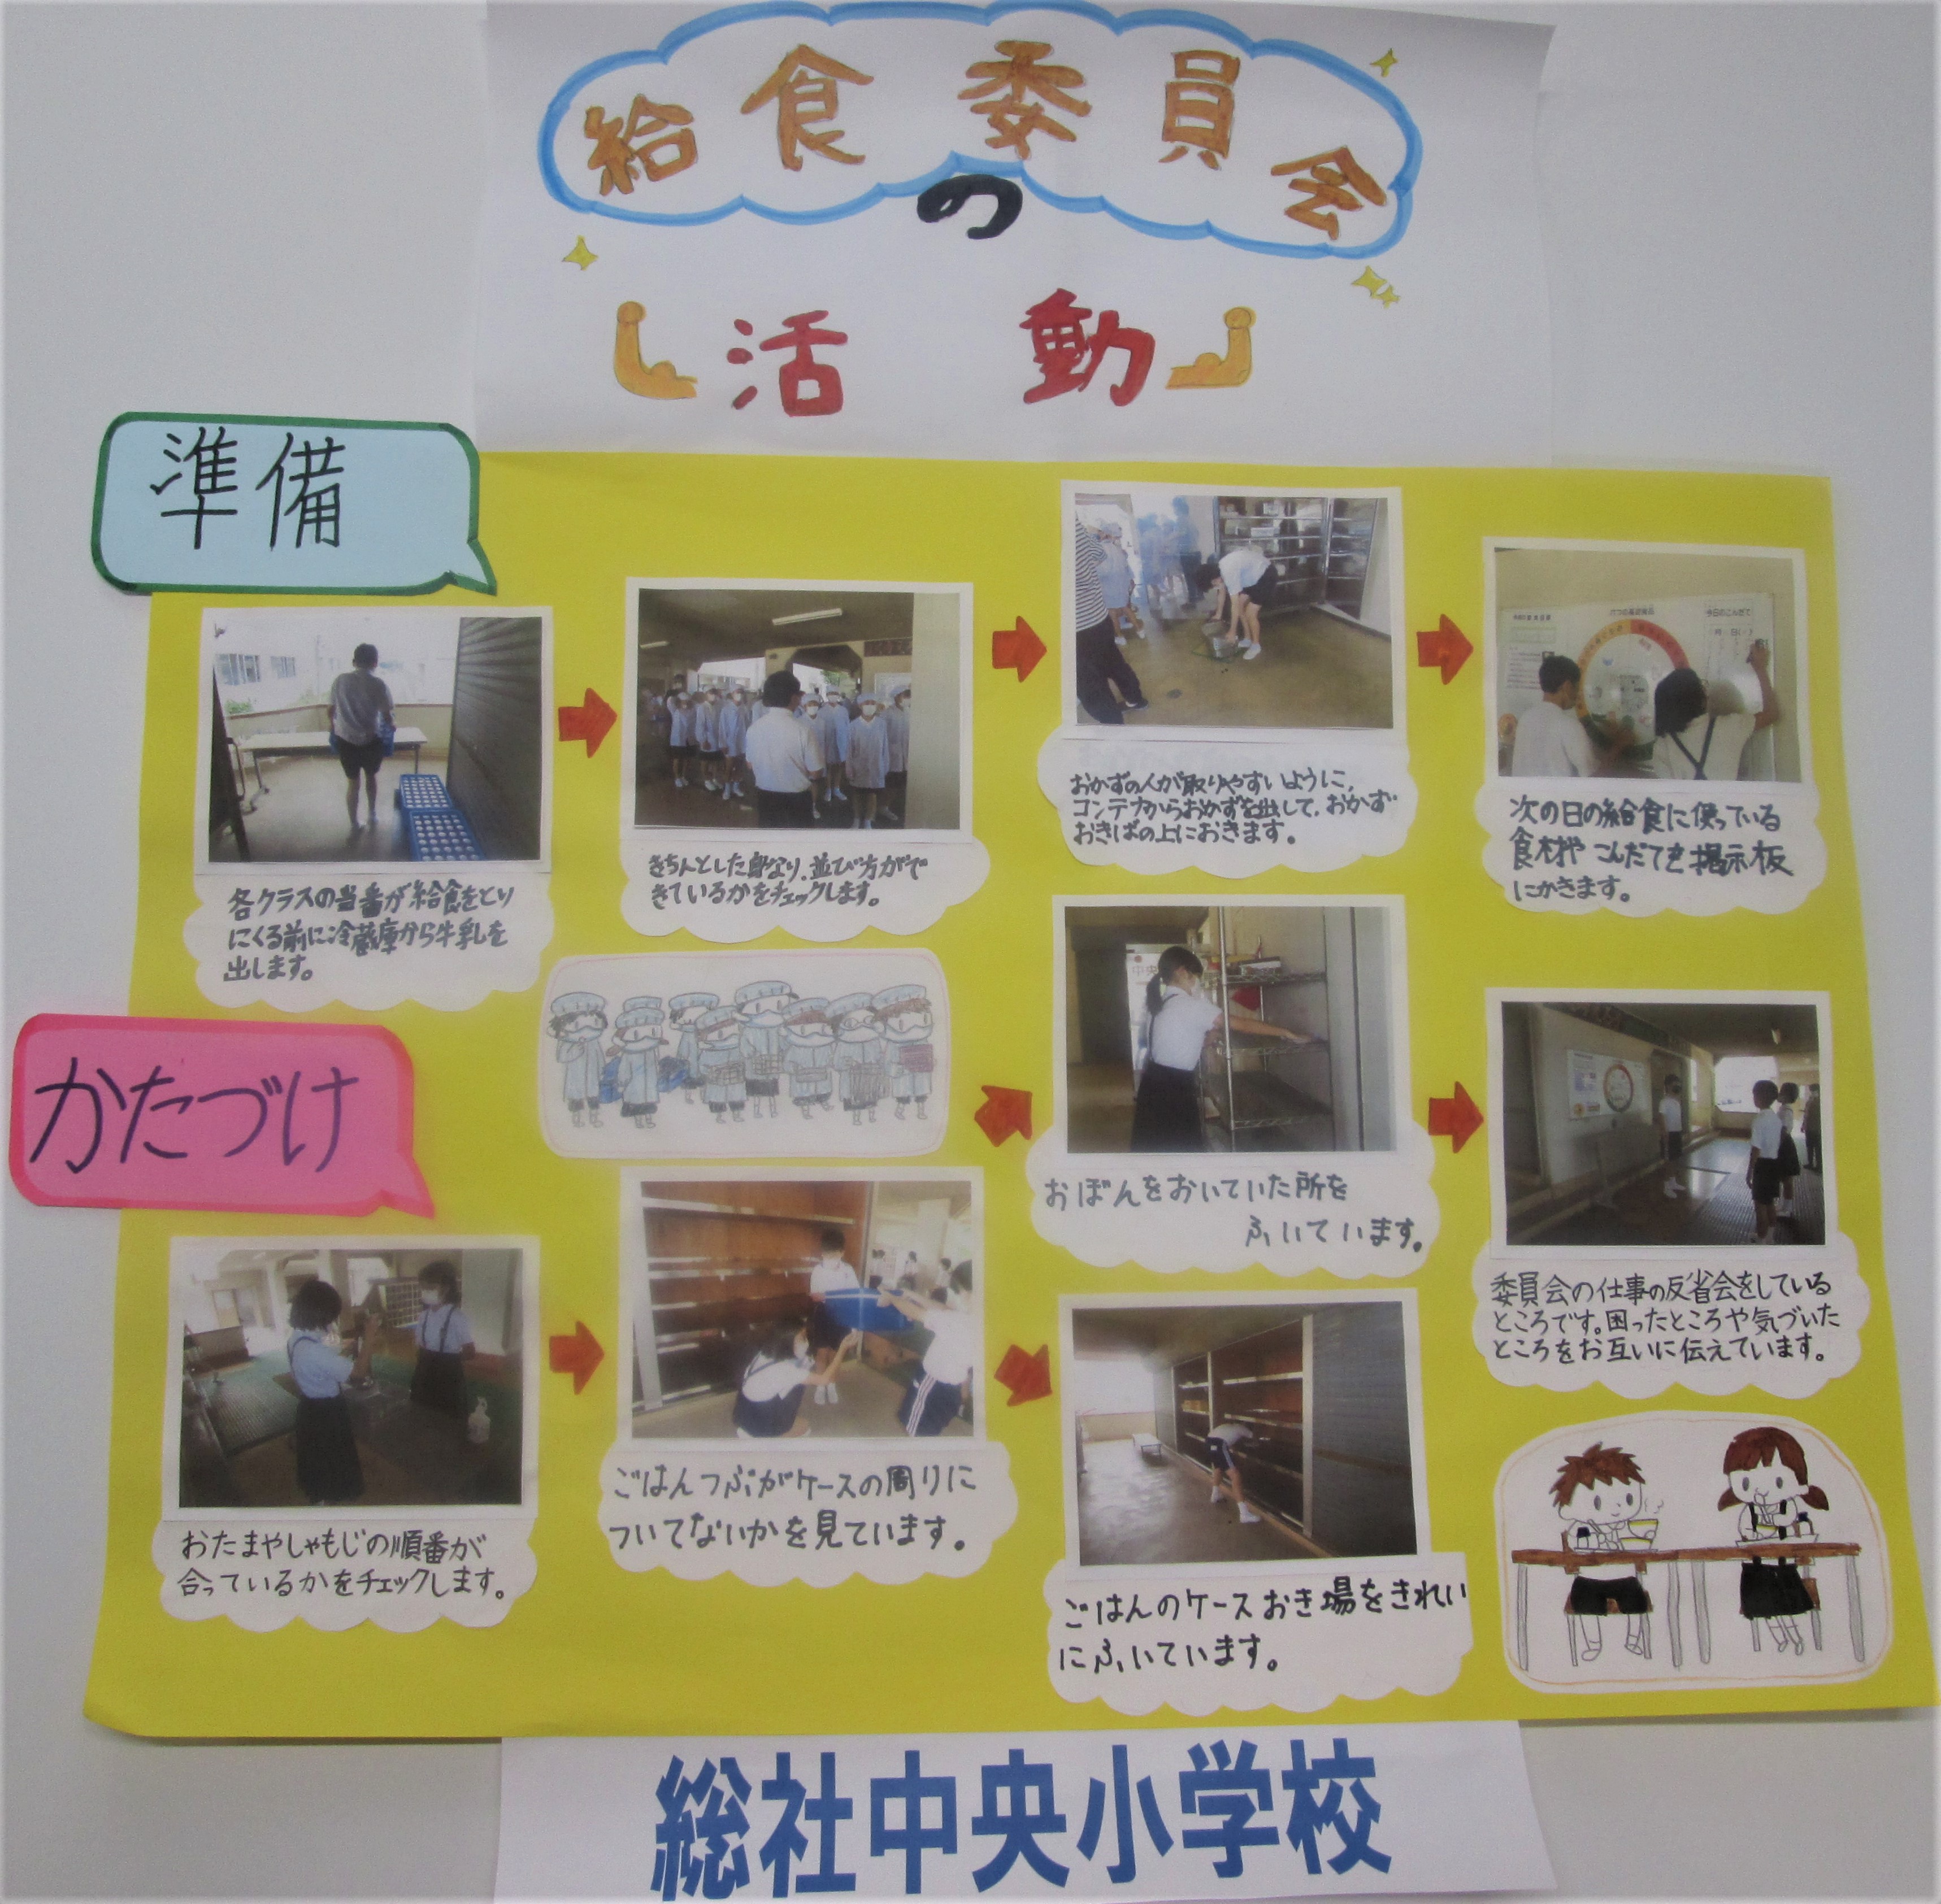 給食委員会
の
活動
準備
各クラスの当番が給食をとり
にくる前に冷蔵庫から牛乳を
出します。
きちんとした身なり、並び方がで
きているかをチェックします。
おかずの人が取りやすいように、
コンテナからおかずを出して、おかず
おきばの上におきます。
今日のこんだて
次の日の給食に使っている
食材や こんだてを掲示板
にかきます。
かたづけ
おたまやしゃもじの順番が
合っているかをチェックします。
ごはんつぶがケースの周りに
ついてないかを見ています。
ごはんのケースおき場をきれい
にふいています。
中央
おぼんをおいていた所を
ふいています。
委員会の仕事の反省会をしている
ところです。困ったところや気づいた
ところをお互いに伝えています。
総社中央小学校